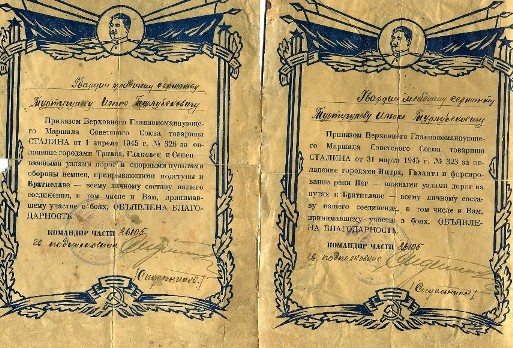 Гвардии младшему сержанту
Приказом Верховного Главнокомандующе-
го Маршала Советского Союза товарища
СТАЛИНА от 1 апреля 1945 г. № 326 за ов-
ладение городами Трнава, Глаковец и Сенец
— важными узлами дорог и опорными пунктами
обороны немцев, прикрывающими подступы к
Братиславе — всему личному составу нашего
соединения, в том числе и Вам, принимав-
шему участие в боях, ОБЪЯВЛЕНА БЛАГО-
ДАРНОСТЬ.
КОМАНДИР ЧАСТИ 28105
гв. подполковник
Гвардии младшему сержанту
Приказом Верховного Главнокомандующе-
го Маршала Советского Союза товарища
СТАЛИНА от 31 марта 1945 г. № 323 за ов-
ладение городами Нитра, Галанта и форсиро-
вание реки Ваг — важными узлами дорог на
путях к Братиславе — всему личному соста-
ву нашего соединения, в том числе и Вам,
принимавшему участие в боях, ОБЪЯВЛЕ-
НА БЛАГОДАРНОСТЬ.
КОМАНДИР ЧАСТИ 28105
гв. подполковник